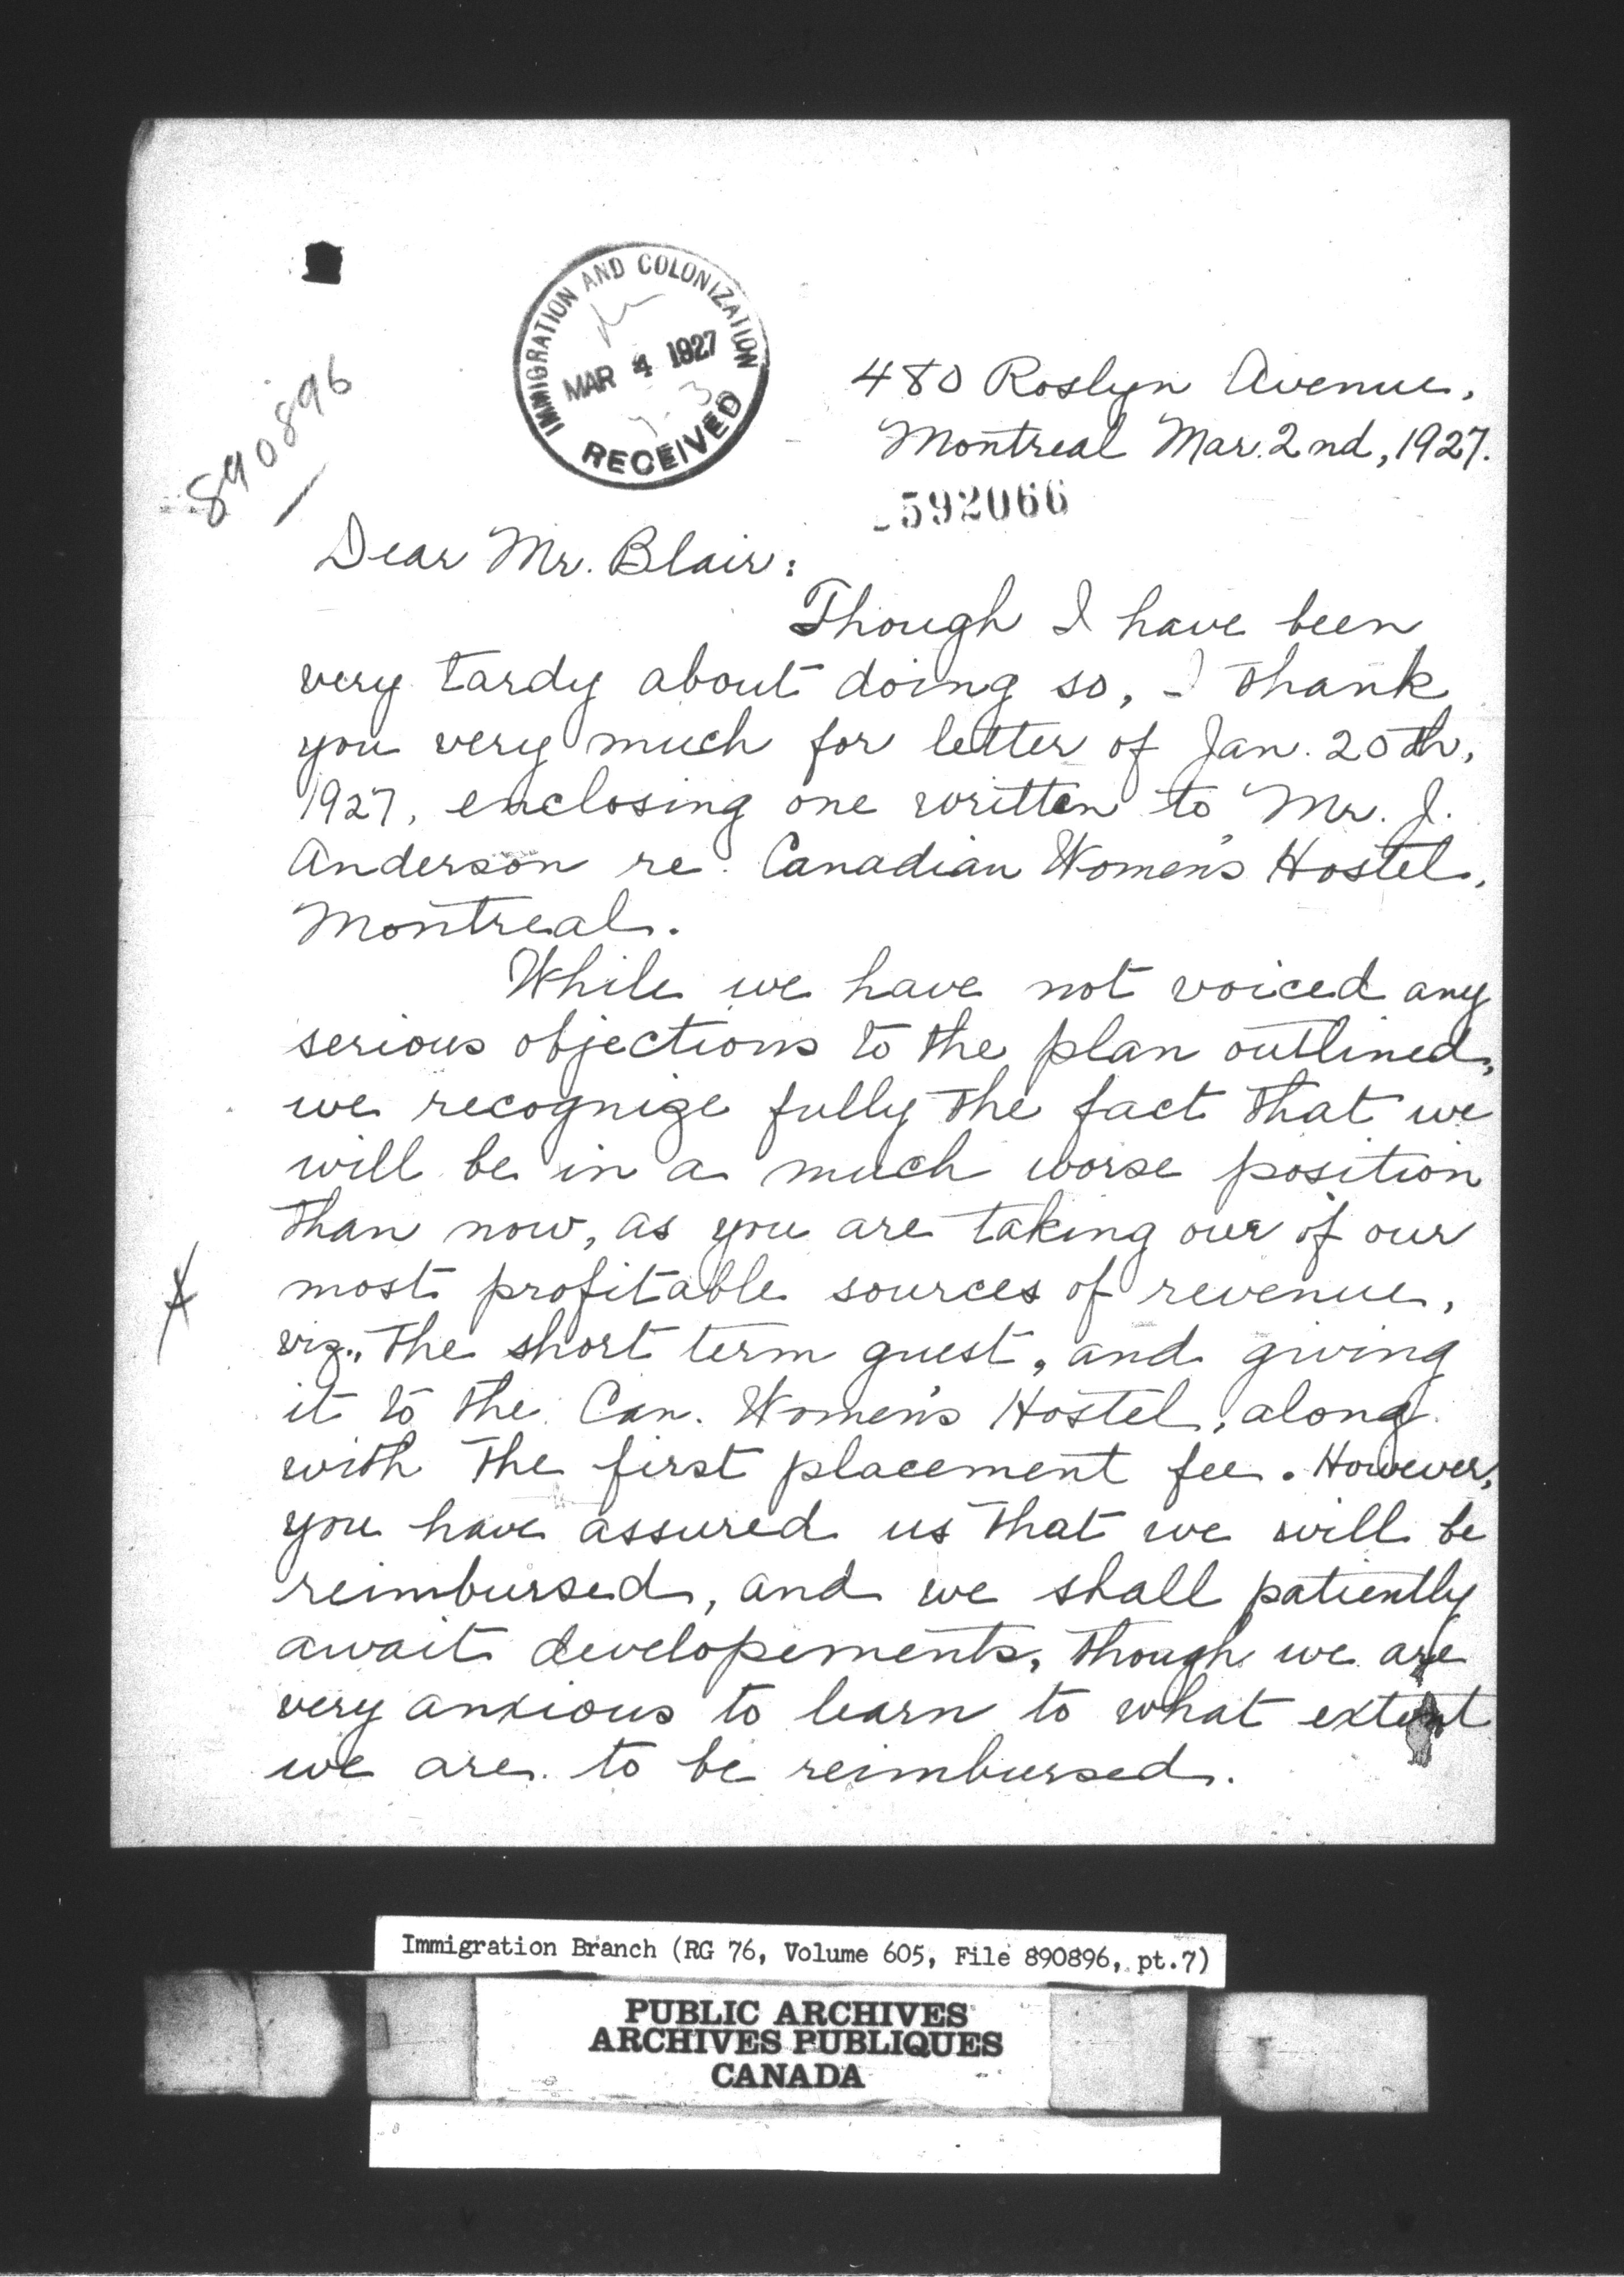 IMMIGRATION AND COLONIZATION
MAR 4 1927
RECEIVED
890896
480 Roslyn Avenue,
Montreal Mar. 2nd, 1927.
592066
Dear Mr. Blair:
Though I have been
very tardy about doing so, I thank
you very much for letter of Jan. 20th,
1927, enclosing one written to Mr. J.
Anderson re. Canadian Women's Hostel,
Montreal.
While we have not voiced any
serious objections to the plan outlined,
we recognize fully the fact that we
will be in a much worse position
than now, as you are taking our of our
most profitable sources of revenue,
viz., the short term guest, and giving
it to the Can. Women's Hostel, along
with the first placement fee. However,
you have assured us that we will be
reimbursed, and we shall patiently
await developements, though we are
very anxious to learn to what extent
we are to be reimbursed.
Immigration Branch (RG 76, Volume 605, File 890896, pt.7)
PUBLIC ARCHIVES
ARCHIVES PUBLIQUES
CANADA